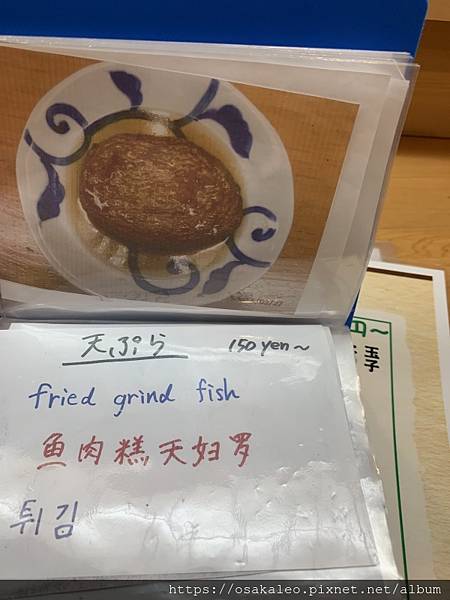 天ぷら 150 yen~
fried grind fish
魚肉糕天妇罗
튀김
円~
玉子
https://osakaleo.pixnet.net/album